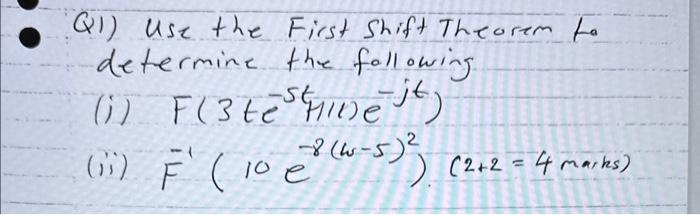 Q1) Use the First Shift Theorem to
determine the following
(i) F(3te^{-5t}H(t)e^{-jt})
(ii) F^{-1}(10e^{-8(w-5)^2}). (2+2 = 4 marks)